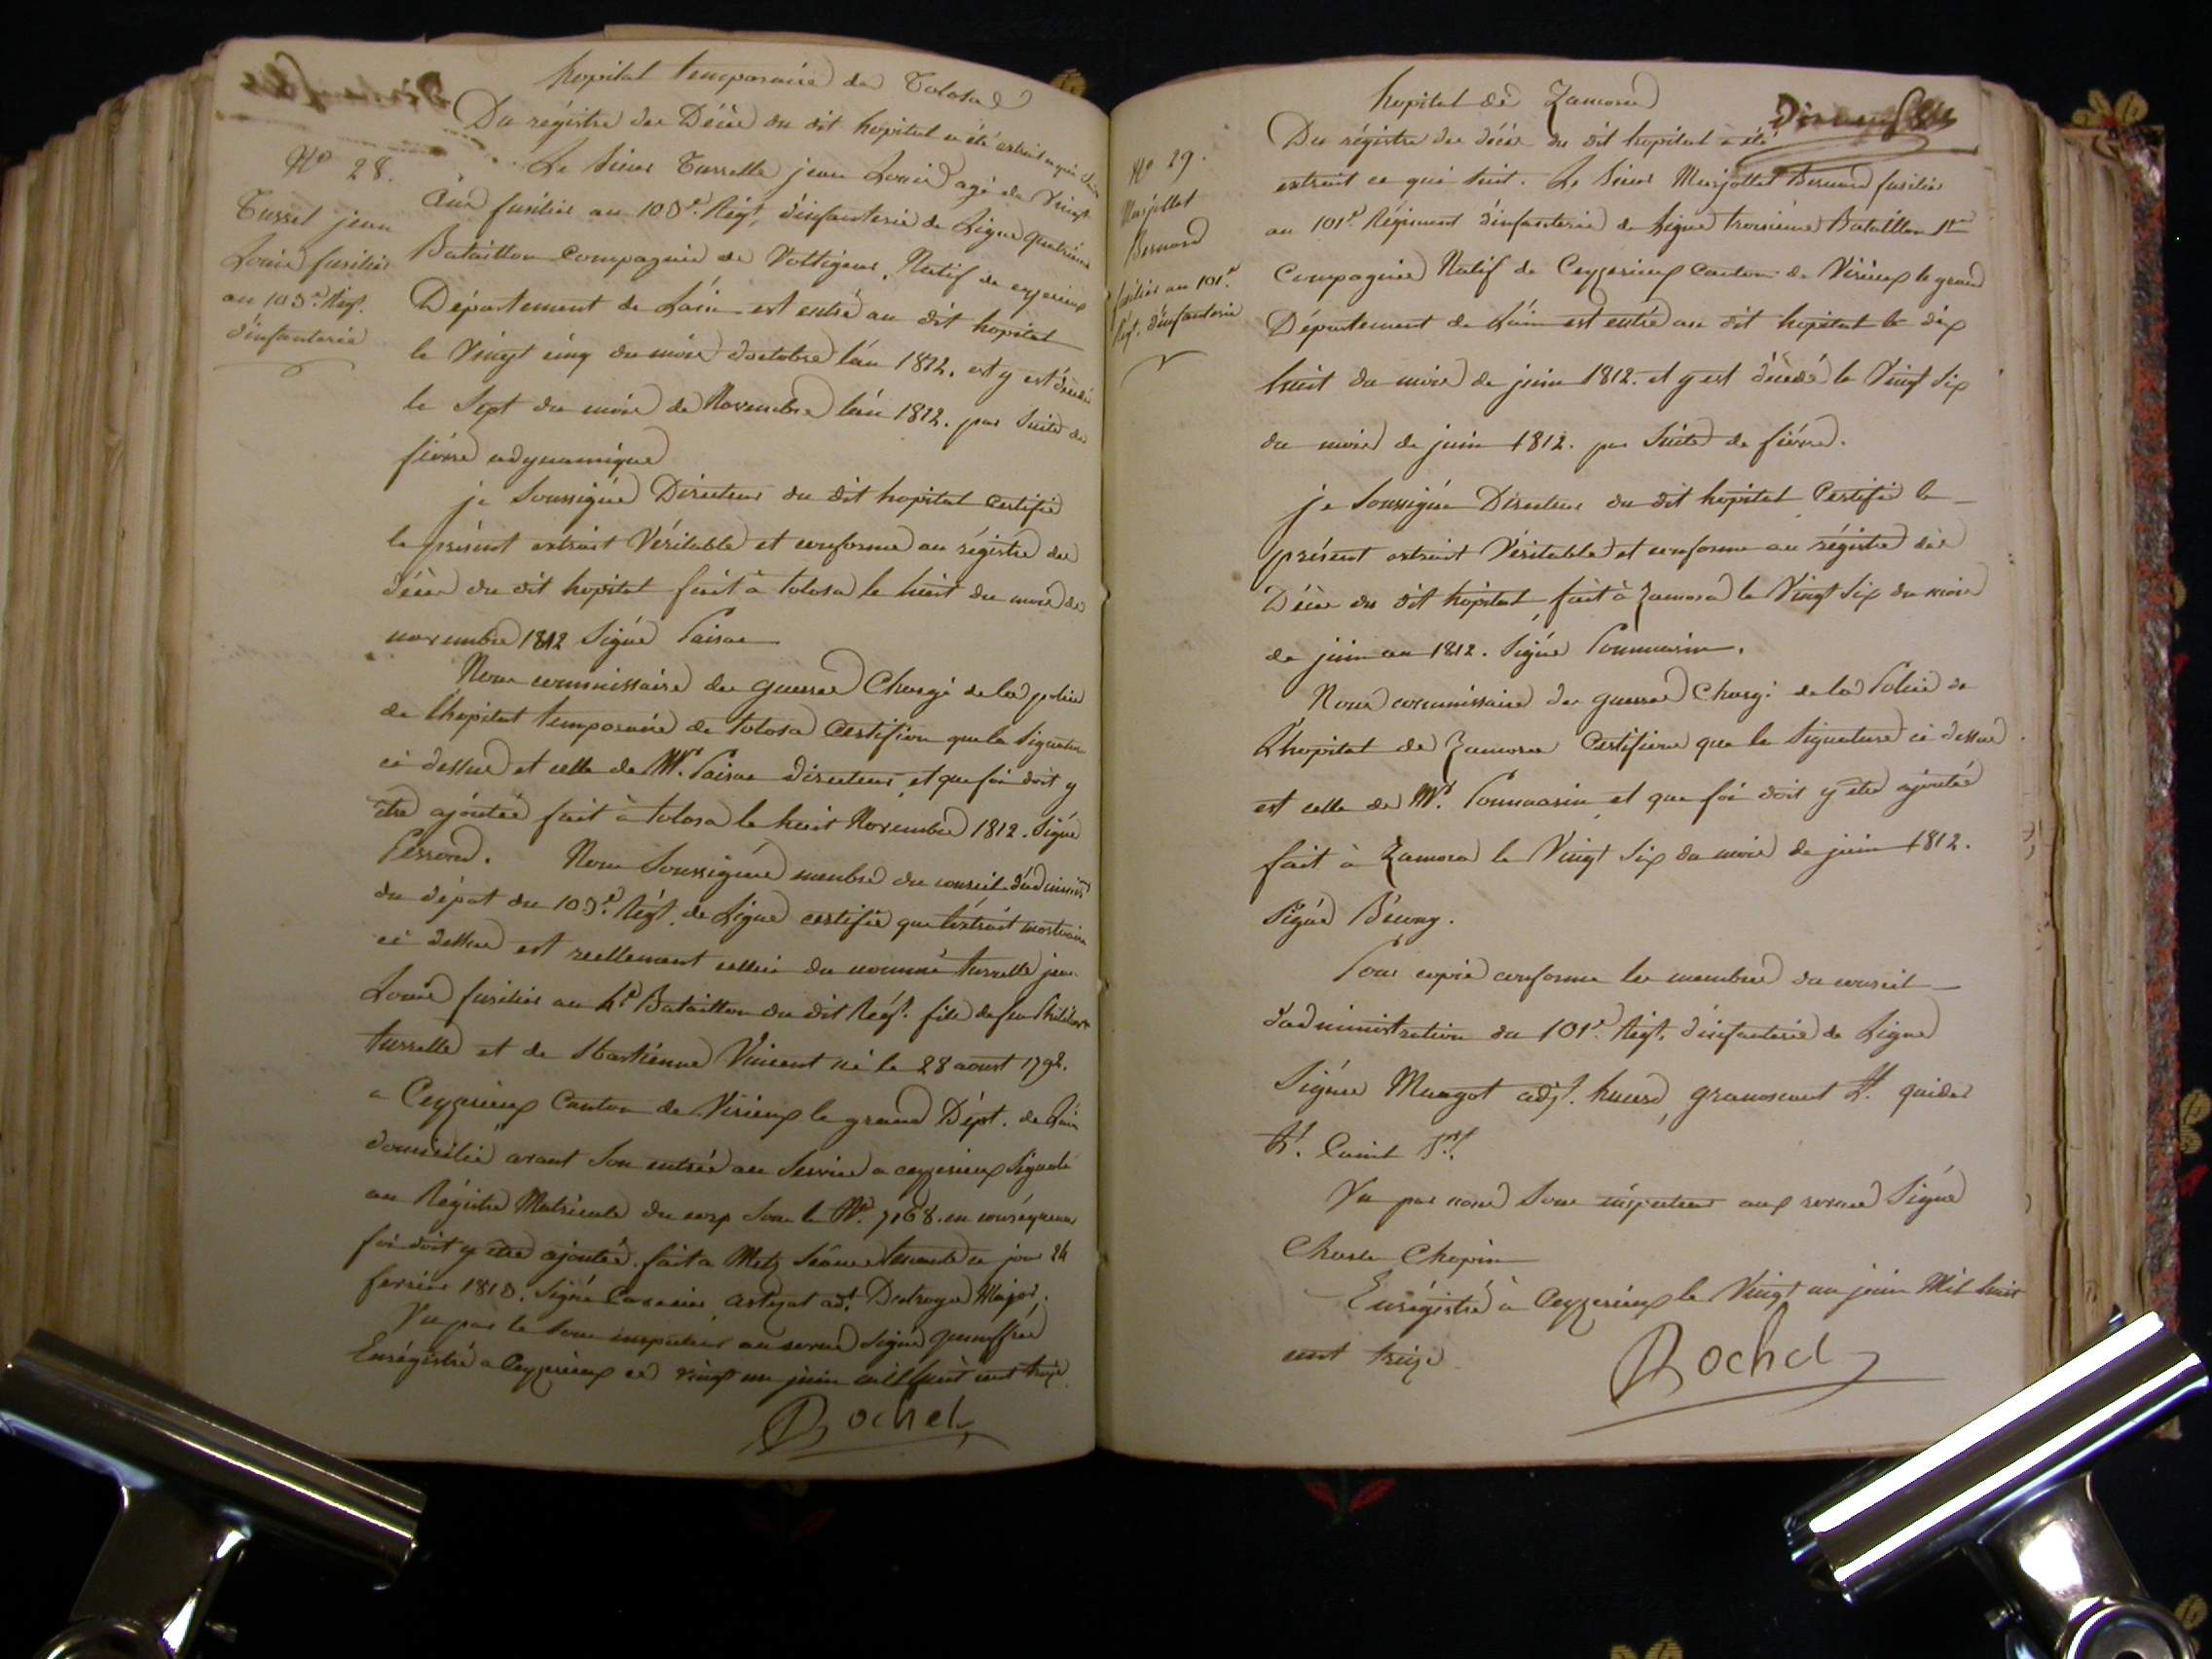 hopital temporaire de Tolosa
Du régistre des Décès du dit hopital a été extrait ce qui suit
N° 28.
Le Sieur Turrelle jean Louis agé de Vingt
Tussel jean
Louis fusilier
au 103e. Régt.
d'infanterie
ans fusilier au 103e. Régt. d'infanterie de Ligne quatrième
Bataillon Compagnie de Voltigeur. Natif de ceyzerieux
Département de L'ain est entré au dit hopital
le Vingt cinq du mois d'octobre l'an 1812. et y est décédé
le Sept du mois de Novembre l'an 1812. par Suite de
fièvre adynamique
je Soussigné Directeur du dit hopital Certifie
le présent extrait Véritable et conforme au régistre des
décès du dit hopital fait à tolosa le huit du mois de
novembre 1812 Signé
Nous commissaire des guerres Chargé de la police
de l'hopital temporaire de tolosa Certifions que la Signature
ci dessus et celle de Mr. directeur, et que foi doit y
être ajoutée fait à tolosa le huit Novembre 1812. Signé
Nous Soussigné membre du conseil d'adminis
du dépot du 103e. Régt. de Ligne certifie que l'extrait mortuaire
ci dessus est reellement celui du nommé turrelle jean
Louis fusilier au 4e. Bataillon du dit Régt. fils de feu Philibert
turrelle et de Vincent né le 28 aoust 1792.
a Ceyzerieux Canton de Virieux le grand Dépt. de L'ain
domicilié avant Son entrée au Service a ceyzerieux Signalé
au Régistre Matricule du corp Sous le N°. 7168. en conséquence
foi doit y être ajoutée. fait a Metz Séance tenante ce jour 24
fevrier 1813. Signé Major.
Vu par le Sous inspecteur au revue Signé
Enrégistré a Ceyzerieux ce vingt un juin mil huit cent treize
Rochet
hopital de Zamora
Du régistre des décès du dit hopital a été
N° 29.
Marjollet
Bernard
fusilier au 101e.
Régt. d'infanterie
extrait ce qui Suit. Le Sieur Marjollet Bernard fusilier
au 101e. Régiment d'infanterie de Ligne troisième Bataillon 1ere
Compagnie Natif de Ceyzerieux Canton de Virieux le grand
Département de L'ain est entré au dit hopital le dix
huit du mois de juin 1812. et y est décédé le Vingt Six
du mois de juin 1812. par Suite de fièvre.
je Soussigné Directeur du dit hopital Certifie le
présent extrait Véritable et conforme au régistre des
Décès du dit hopital fait à Zamora le Vingt Six du mois
de juin an 1812. Signé Pommarin.
Nous commissaire des guerres Chargé de la Police de
L'hopital de Zamora Certifions que la Signature ci dessus
est celle de Mr. Pommarin et que foi doit y être ajoutée
fait à Zamora le Vingt Six du mois de juin 1812.
Signé
Pour copie conforme les membres du conseil
d'administration du 101e. Régt. d'infanterie de Ligne
Signés Mangot adjt.
Vu par nous Sous inspecteur aux revues Signé
Charles Chopin
Enrégistré à Ceyzerieux le Vingt un juin Mil huit
cent treize
Rochet